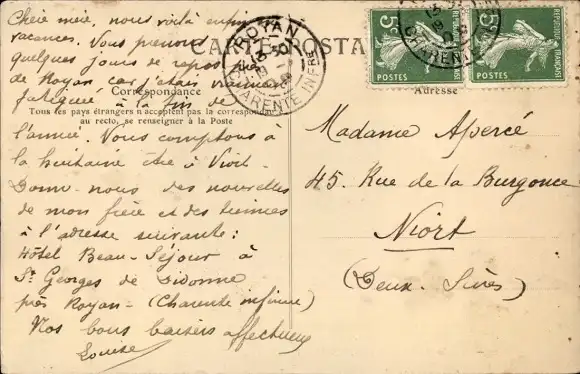 Chère mère, nous voilà enfin
vacances. Vous prenons
quelques jours de repos près
de Royan car j'étais vraiment
fatiguée à la fin de
l'année. Nous comptons à
la huitaine être à Niort.
Donne-nous des nouvelles
de mon frère et des tiennes
à l'adresse suivante:
Hôtel Beau-Séjour à
St Georges de Didonne
près Royan-(Charente infre)
Nos bons baisers affectueux
Louise
CARTE POSTA
Correspondance
Tous les pays étrangers n'acceptent pas la correspondance
au recto, se renseigner à la Poste
Adresse
ROYAN
CHARENTE INFRE
5c
REPUBLIQUE FRANÇAISE
POSTES
5c
REPUBLIQUE FRANÇAISE
POSTES
CHARENTE
Madame Apercé
45. Rue de la Burgonce
Niort
(Deux-Sèvres)